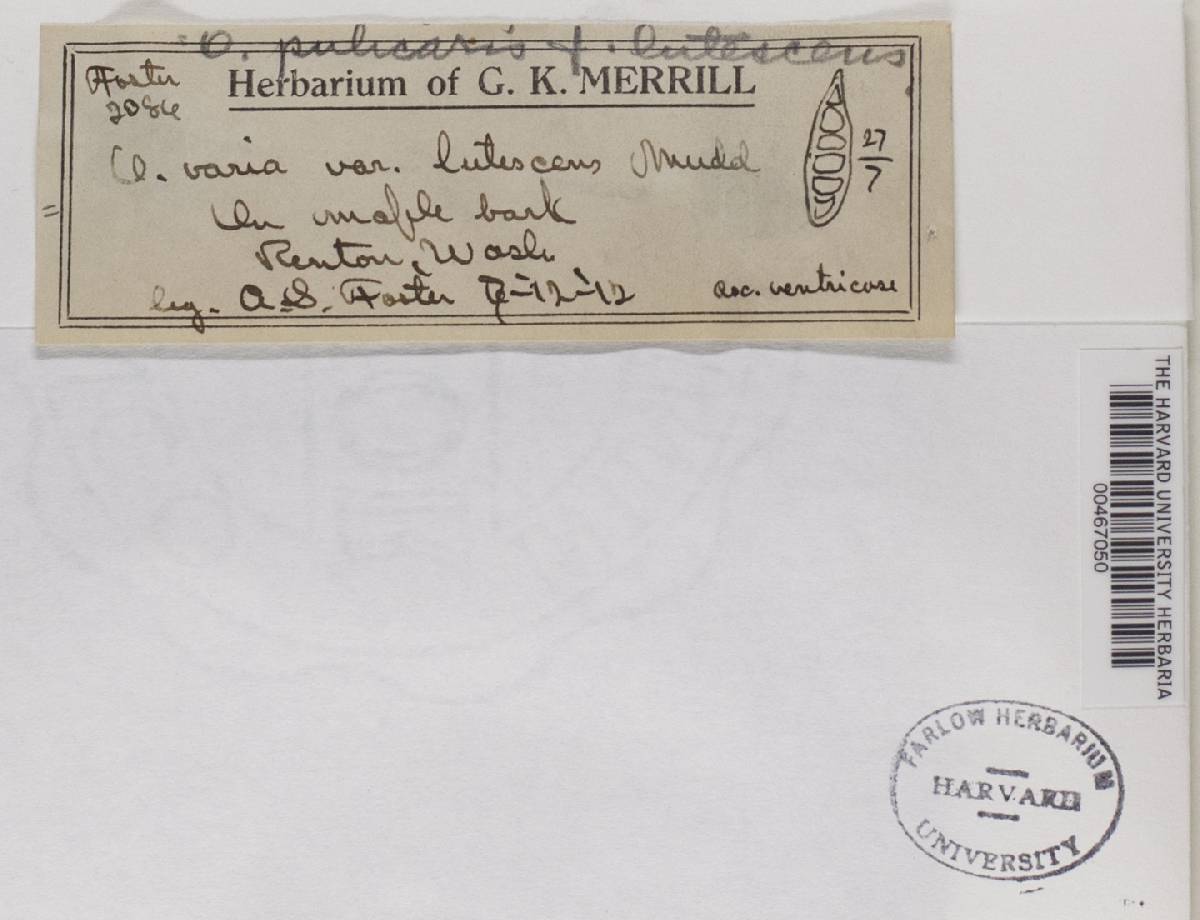 O. pulicaris f. lutescens
Foster
2086
Herbarium of G. K. MERRILL
O. varia var. lutescens Mudd
On maple bark
Renton, Wash.
leg. A.S. Foster -12-12
27
7
asc. ventricose
THE HARVARD UNIVERSITY HERBARIA
00467050
FARLOW HERBARIUM
HARVARD
UNIVERSITY